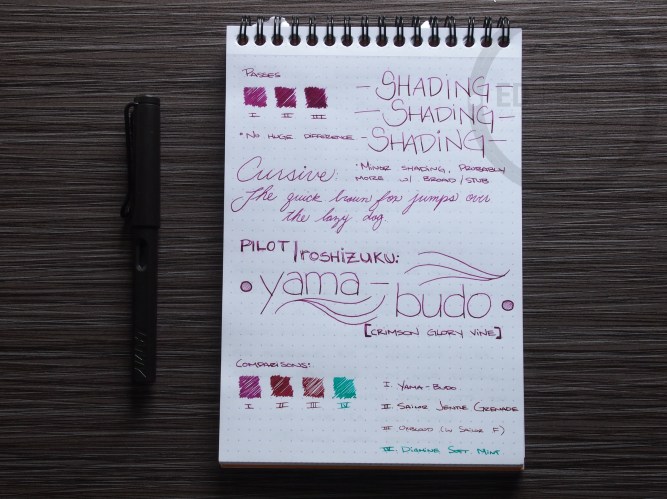 Passes
I II III
- SHADING -
- SHADING -
- SHADING -
* No huge difference
Cursive:
* Minor shading, probably
more w/ broad/stub
The quick brown fox jumps over
the lazy dog.
PILOT/Iroshizuku:
yama-
budo
[crimson glory vine]
Comparisons:
I II III IV
I. Yama-Budo
II. Sailor Jentle Grenade
III. (w Sailor F)
IV. Diamine Soft Mint
LAMY